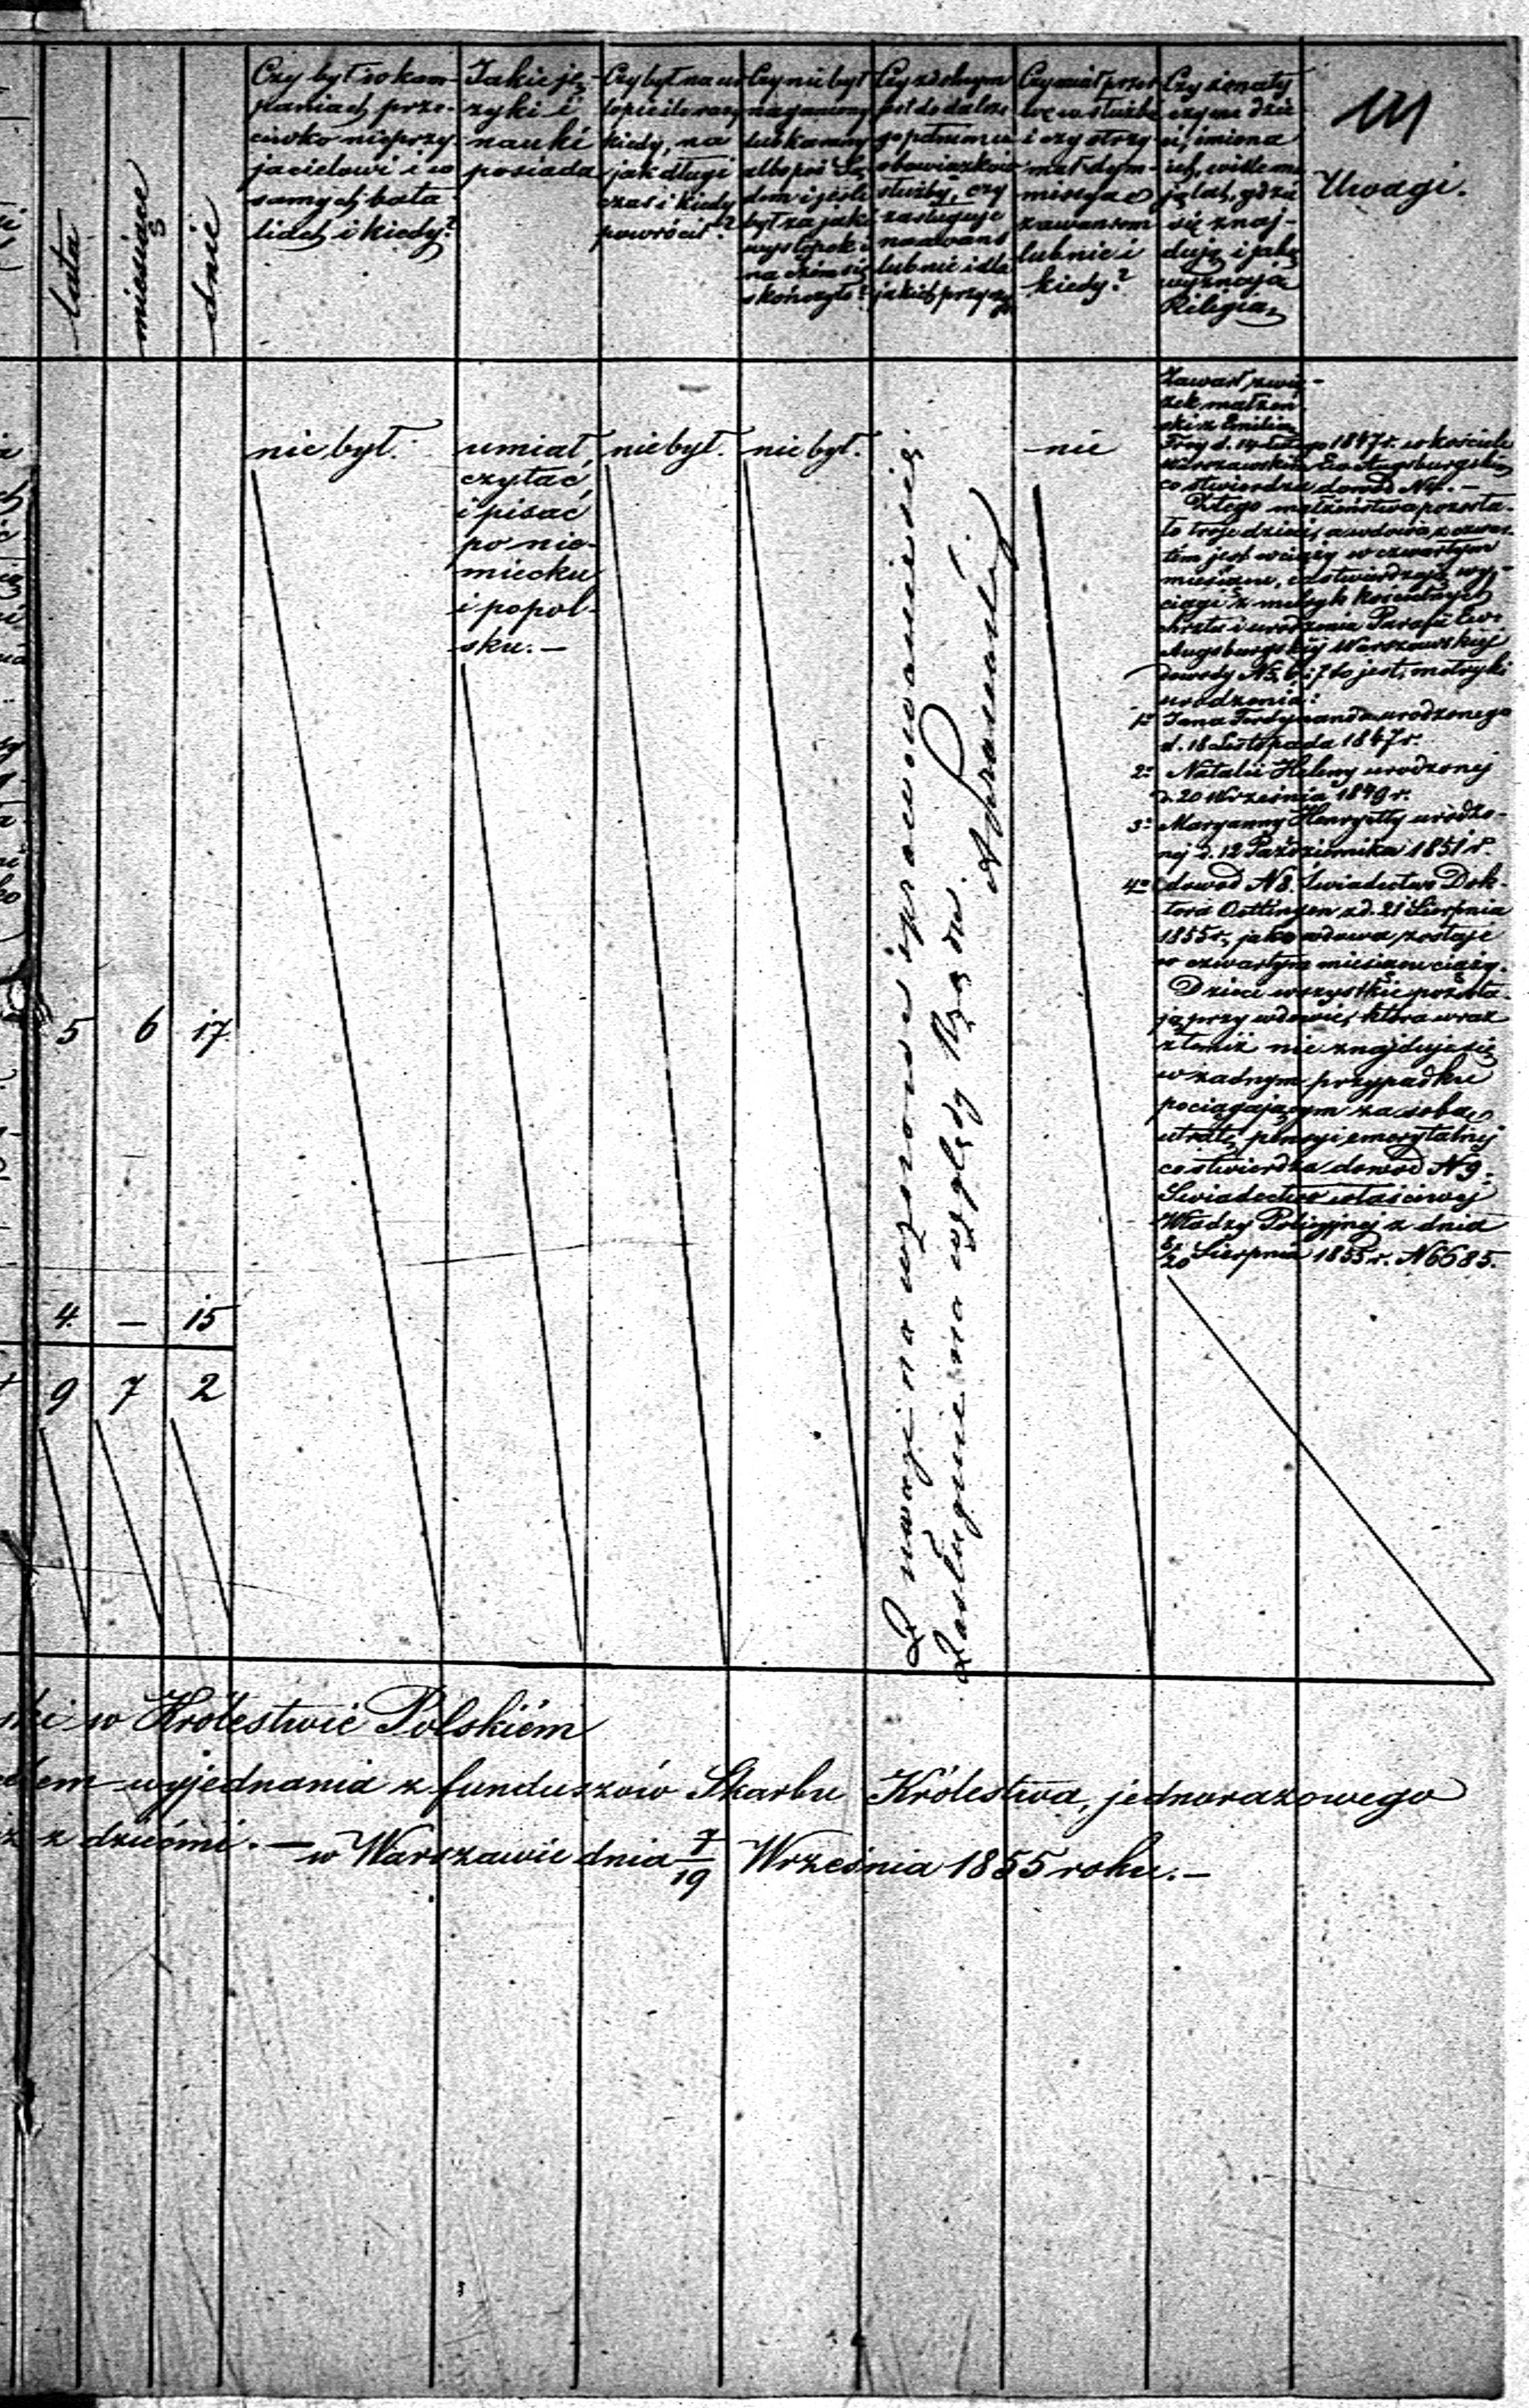 111
lata
miesiące
dnie
Czy był w kam-
paniach prze-
ciwko nieprzy-
jacielowi i w
samych bata-
liach i kiedy?
Jakie ję-
zyki i
nauki
posiada
Czy był na ur-
lopie ile razy
kiedy, na
jak długi
czas i kiedy
powrócił?
Czy nie był
naganiony
lub karany
albo pod Są-
dem i jeśli
był za jaki
występek i
na czém się
skończyło?
Czy zdolnym
był do dalsze-
go pełnienia
obowiązków
służby, czy
zasługuje
na awans
lub nie i dla
jakich przyczyn
Czy miał przer-
wę w służbie
i czy otrzy-
mał dym-
missyę z
zawansem
lub nie i
kiedy?
Czy żonaty
czy ma dzie-
ci, imiona
ich, wiele ma-
ją lat, gdzie
się znaj-
dują i jaką
wyznają
Religią
Uwagi.
nie był.
umiał
czytać
i pisać
po nie-
miecku
i popol-
sku. —
nie był.
nie był.
Z uwagi na wzorowe sprawowanie się
zasługuje na względy Rządu.
nie
Zawarł zwią-
zek małżeń-
ski z Emilią
Frey d. 14 Lutego 1847 r. w kościele
Warszawskim Ew. Augsburgskim
co stwierdza dowód N 4. —
Z tego małżeństwa pozosta-
ło troje dzieci, a wdowa z czwar-
tem jest w ciąży w czwartym
miesiącu, co stwierdzają wy-
ciągi z metryk kościelnych
chrztu i urodzenia Parafii Ew:
Augsburgskiej Warszawskiej
dowody N 5, 6 i 7 to jest, metryki
urodzenia:
1o Jana Ferdynanda urodzonego
d. 18 Listopada 1847 r.
2o Natalii Heleny urodzonej
d. 20 Września 1849 r.
3o Maryanny Henryetty urodzo-
nej d. 12 Października 1851 r.
4o dowód N 8. Świadectwo Dok-
tora Oettingen z d. 21 Sierpnia
1855 r., jako wdowa zostaje
w czwartym miesiącu ciąży.
Dzieci wszystkie pozosta-
ją przy wdowie, która wraz
z temiż nie znajduje się
w żadnym przypadku
pociągającym za sobą
utratę pensyi emerytalnej
co stwierdza dowód N 9.
Świadectwo właściwej
Władzy Policyjnej z dnia
8/20 Sierpnia 1855 r. N 6685.
5 6 17
4 — 15
9 7 2
w Królestwie Polskiém
wyjednania z funduszów Skarbu Królestwa, jednorazowego
z dziećmi. — w Warszawie dnia 7/19 Września 1855 roku. —